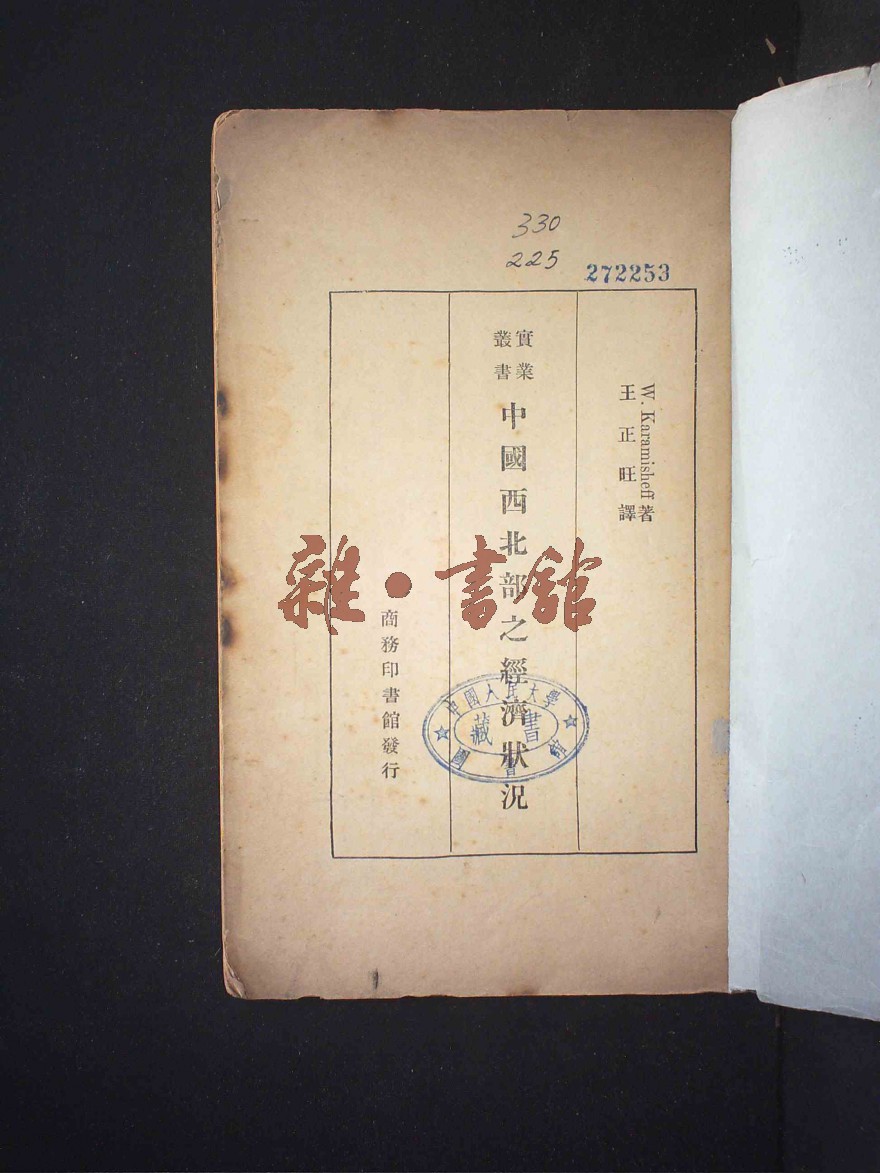 330
225
272253
W. Karamisheff 著
王正旺譯
實業
叢書
中國西北部之經濟狀況
商務印書館發行
中國人民大學
藏書
圖書館
雜·書館